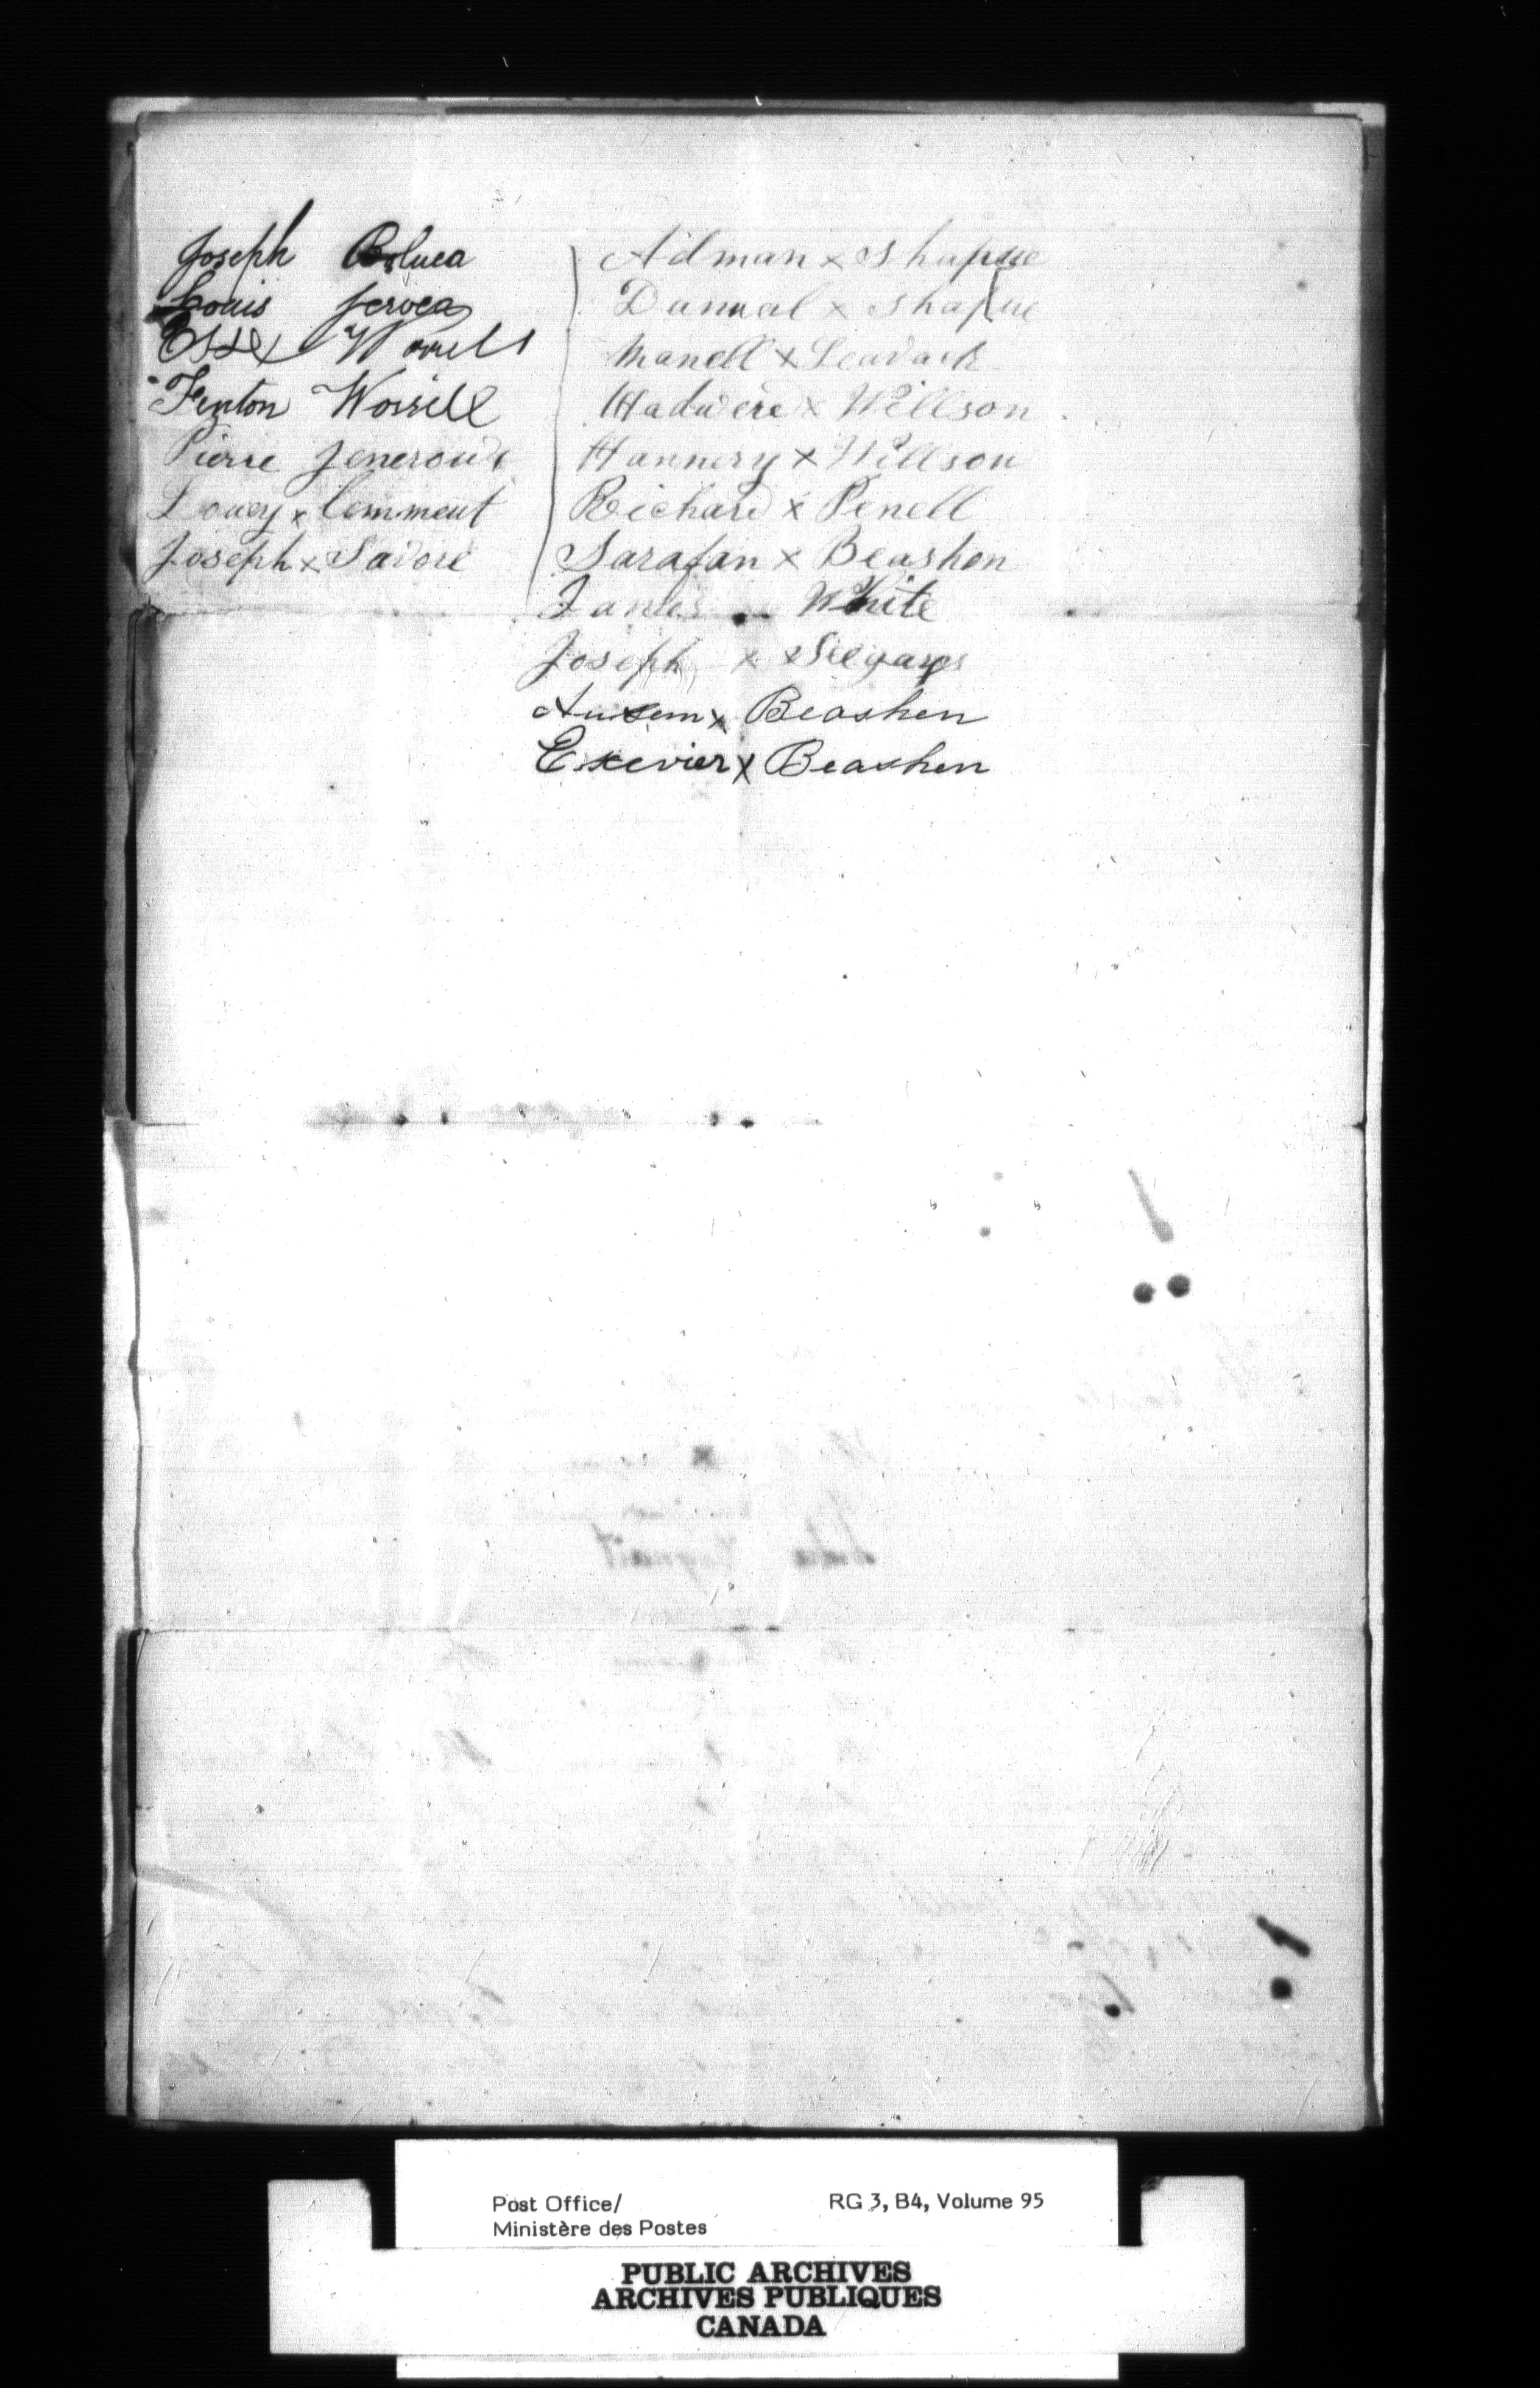 Joseph
Louis Jervea
Essex Worrell
Fenton Worrell
Pierre Jenerouve
Louey x Cemment
Joseph x Savore
Adman x Shapue
Danual x Shapue
Manell x Leavack
Hadwere x Willson
Hannery x Willson
Reichard x Penell
Sarafan x Beashen
James White
Joseph x
Auxem x Beashen
Exevier x Beashen
Post Office/
Ministère des Postes
RG 3, B4, Volume 95
PUBLIC ARCHIVES
ARCHIVES PUBLIQUES
CANADA